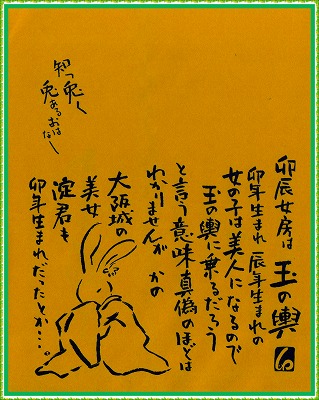 知っ兎く
兎あるおは
なし
卯辰女房は玉の輿
卯年生まれ 辰年生まれの
女の子は美人になるので
玉の輿に乗るだろう
と言う意味 真偽のほどは
わかりませんが かの
大阪城の
美女
淀君も
卯年生まれだったとか・・・。